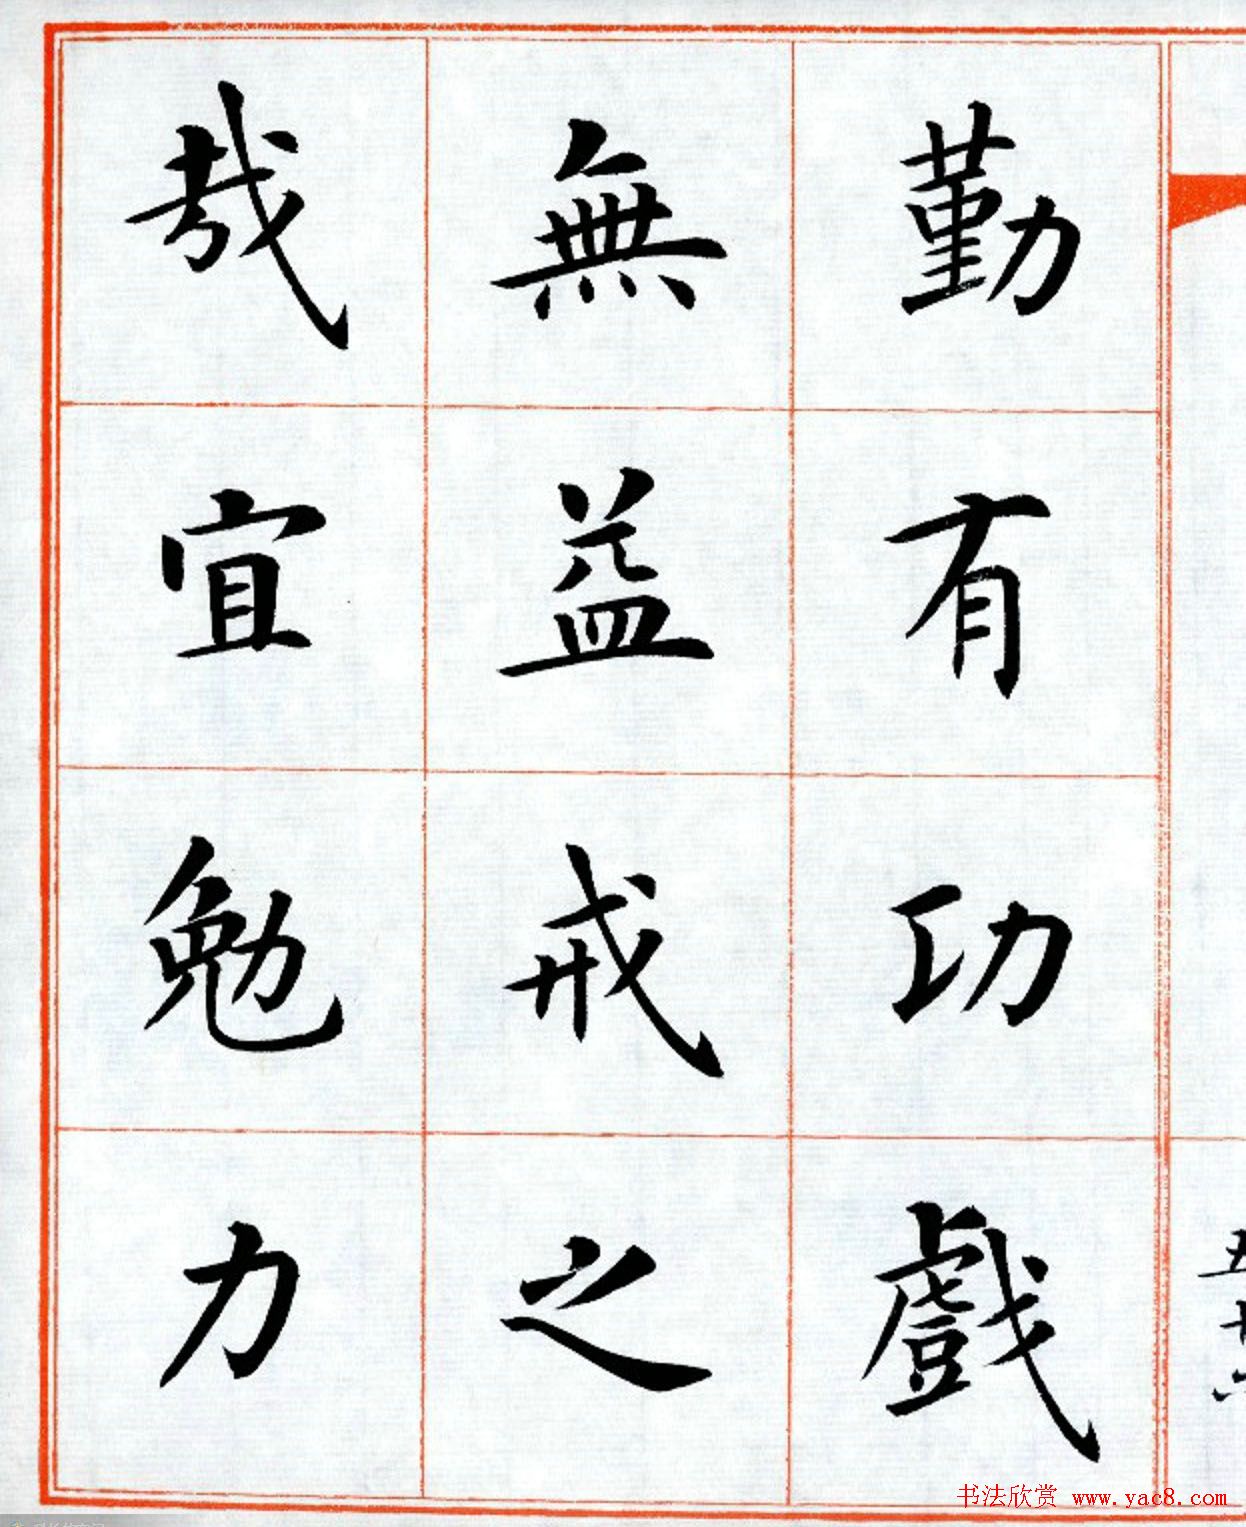 勤有功戲
無益戒之
哉宜勉力
五十六
书法欣赏 www.yac8.com